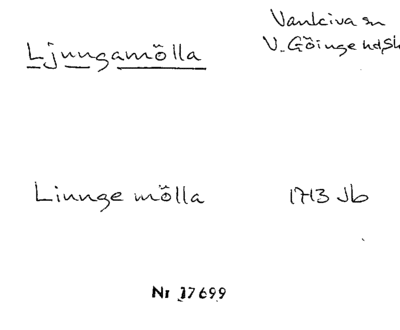 Vankiva sn
Ljungamölla V. Göinge hd, Sk
Linnge mölla 1713 Jb
Nr 17699